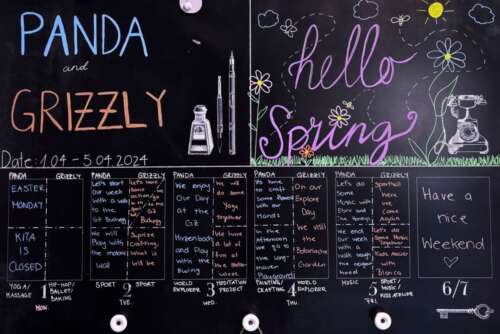 PANDA
and
GRIZZLY
Date: 1.04 - 5.04.2024
hello
Spring
PANDA GRIZZLY
EASTER
MONDAY
KITA
IS
CLOSED
YOGA/
MASSAGE
1
MON
HIP-HOP/
BALLET/
BAKING
PANDA GRIZZLY
Let's start
our week
with a walk
to the
Gut
We will
Play with
the
Suprise
Crafting.
What is
it will be
SPORT
2
TUE.
SPORT
PANDA GRIZZLY
We enjoy
Our Day
at the
Git
We will
do some
Yoga
Together
and Play
with the
We had
a lot of
fun at the
WORLD
EXPLORER
3
WED.
MEDITATION
PROJECT
PANDA GRIZZLY
some
with our
Hands
In the
Afternoon
we go to
the long-
Playground
On our
Explore
Day
We visit
the
Botanische
Garden
PAINTING/
CRAFTING
4
THU.
WORLD
EXPLORER
PANDA GRIZZLY
Let's do
Some
Music with
and the
Sporthall
here we
Come
We end
Our Week
with a
walk
through
the
Let's do
Some Music
Together
Kids Atelier
with
Bianca
MUSIC
5
FRI.
SPORT/
MUSIC/
KIDS ATELIER
Have a
nice
Weekend
6/7